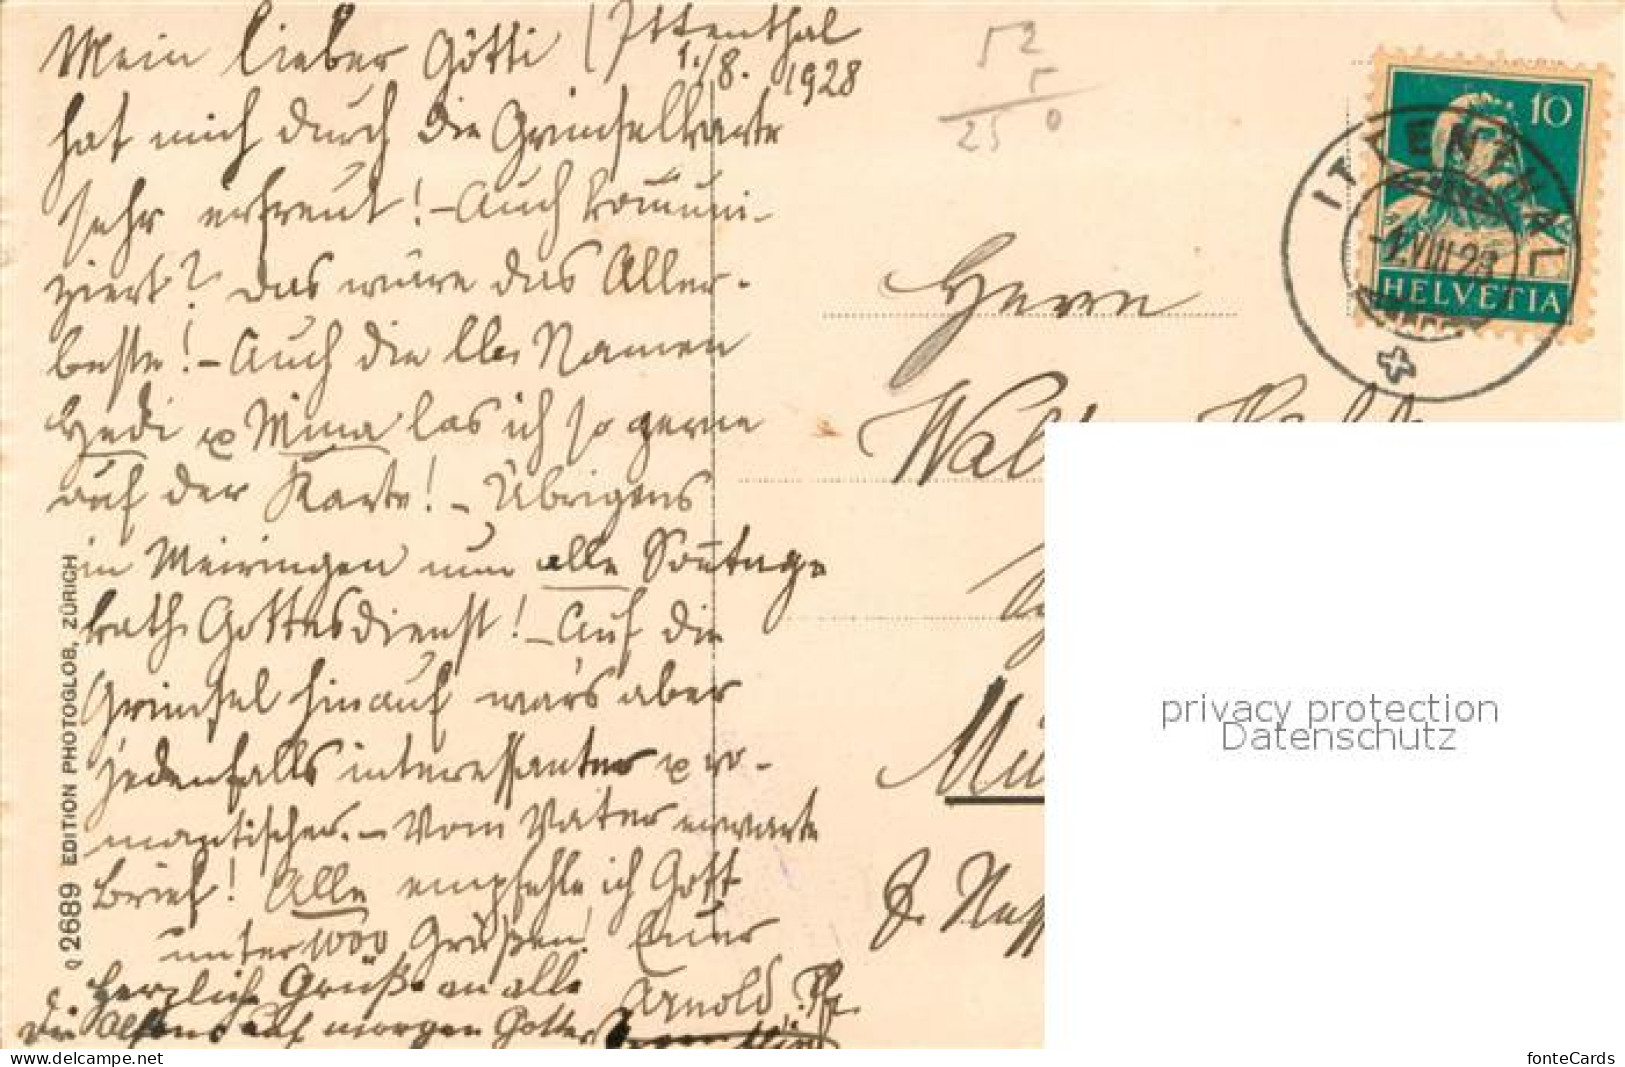 Mein lieber Götti / Ittenthal
1./8. 1928
hat mich durch die Grimselkarte
sehr erfreut! – Auch kom̄uni-
ziert? Das wäre das Aller-
beste! – Auch die lb. Namen
Hedi & Mina las ich so gerne
auf der Karte! – Übrigens
in Meiringen nun alle Son̄tage
kath. Gottesdienst! – Auf die
Grimsel hinauf wär's aber
jedenfalls interessanter & ro-
mantischer. – Vom Vater erwarte
Brief! Alle empfehle ich Gott
unter 1000 Grüßen! Euer
Arnold, Pfr.
Herzliche Grüße an alle
auf morgen
52
5
25 0
Herrn
10
HELVETIA
ITTENTHAL
-1.VIII.28
Q 2689 EDITION PHOTOGLOB, ZÜRICH
privacy protection
Datenschutz
https://www.delcampe.net
fonteCards